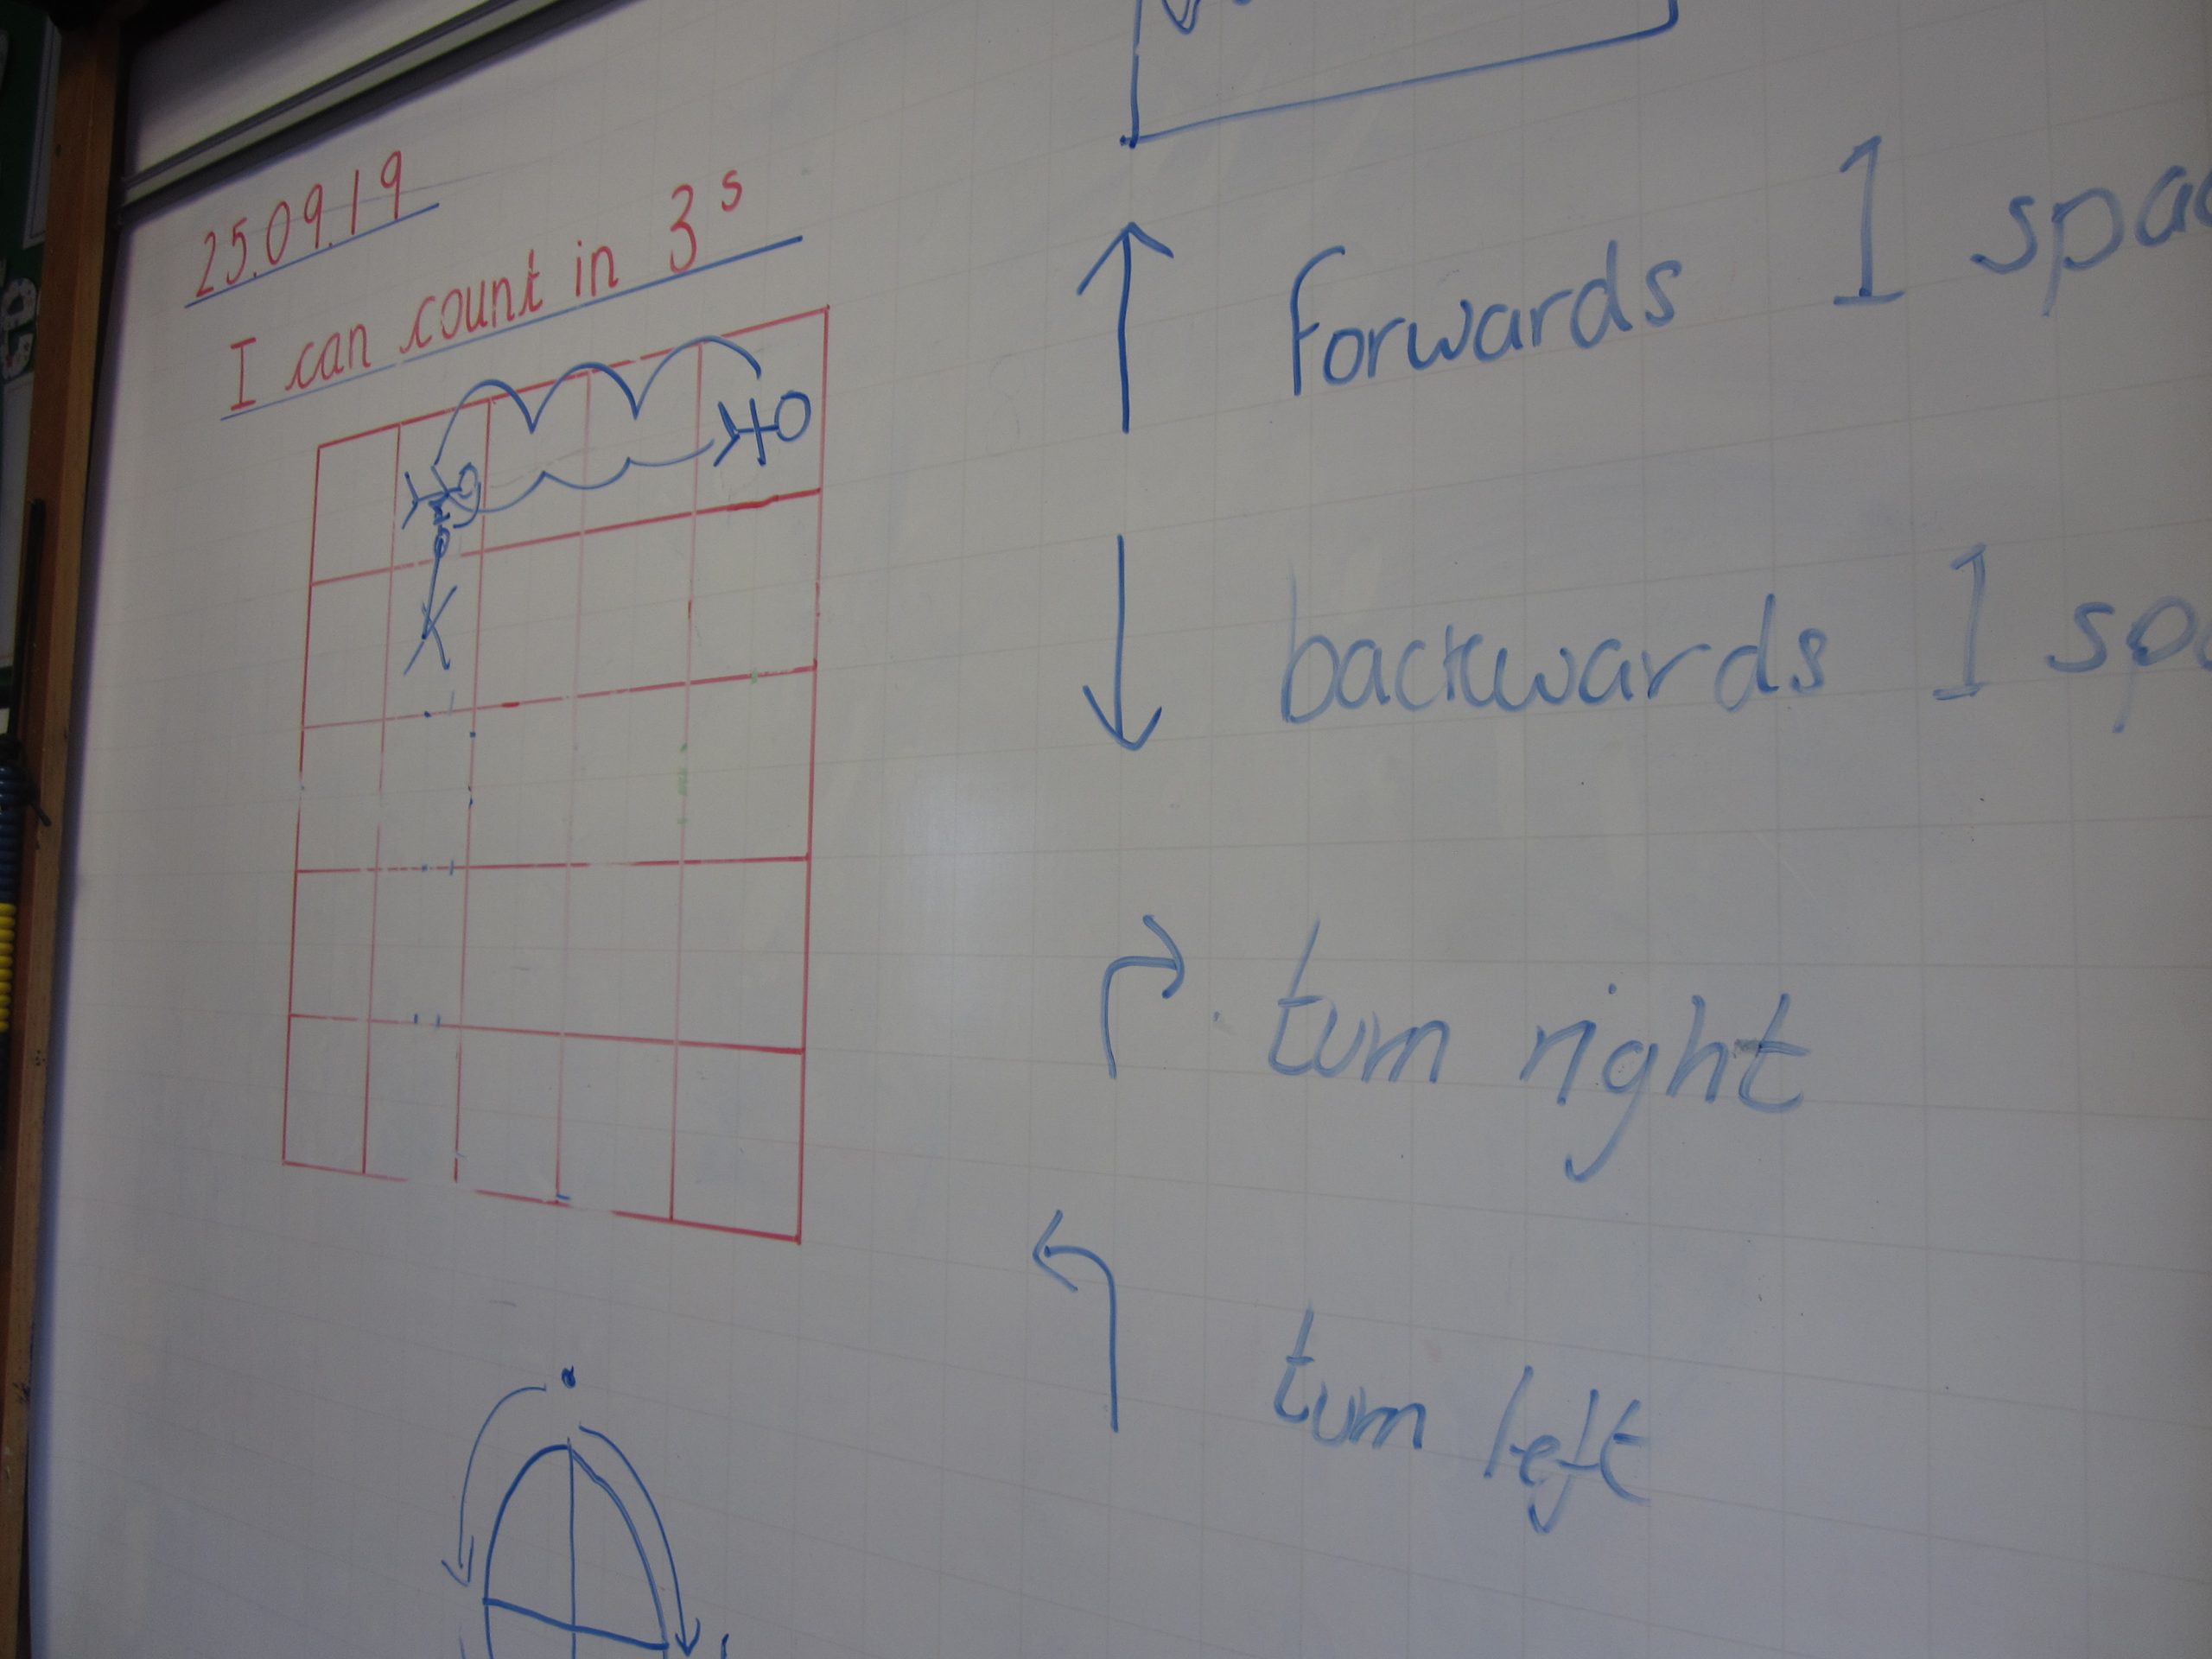 25.09.19
I can count in 3s
forwards 1 spac
backwards 1 spa
turn right
turn left